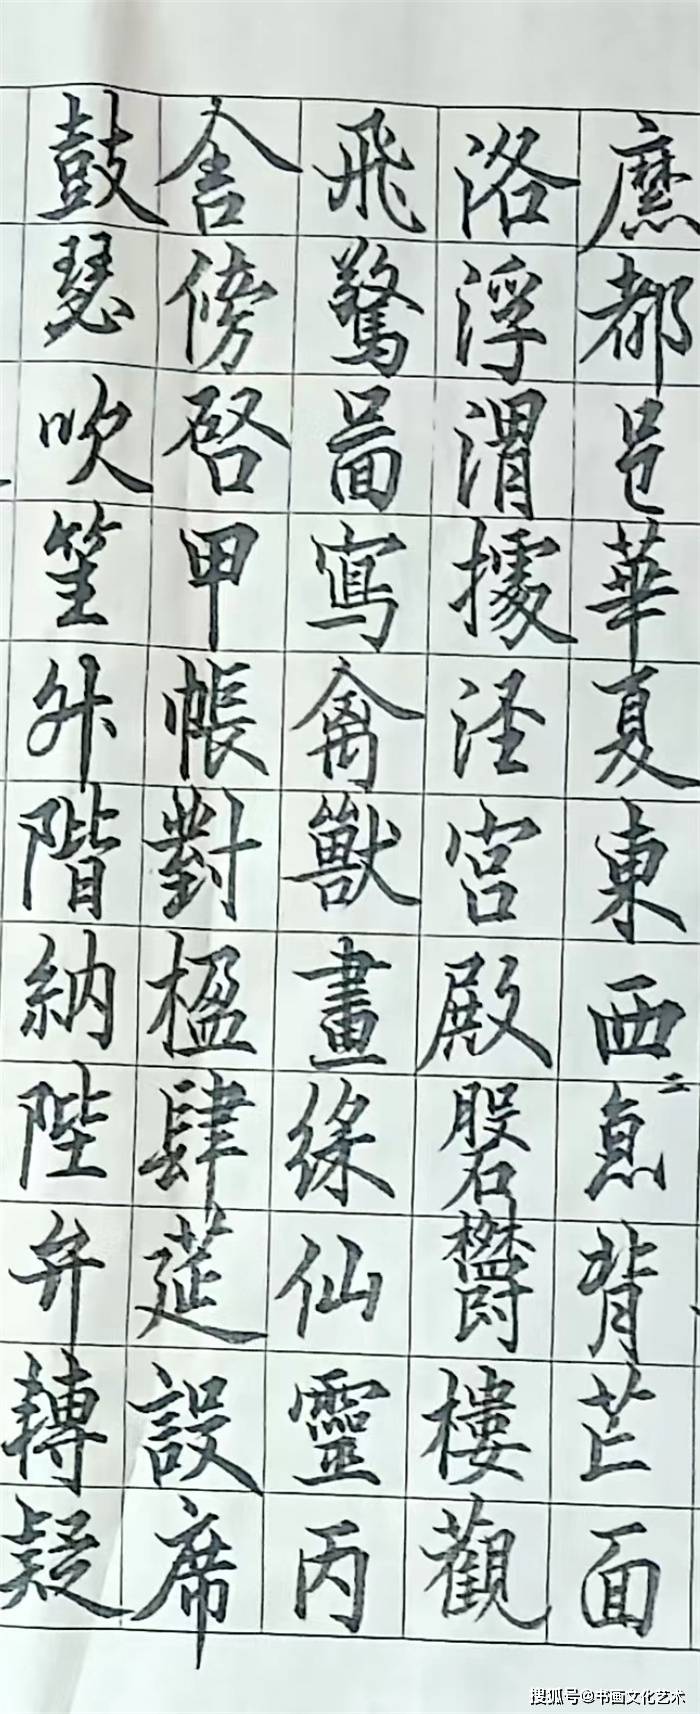 縻都邑華夏東西二京背芒面
洛浮渭據涇宮殿磐鬱樓觀
飛驚啚寫禽獸畫綵仙靈丙
舍傍啓甲帳對楹肆筵設席
鼓瑟吹笙升階納陛弁轉疑
搜狐号@书画文化艺术